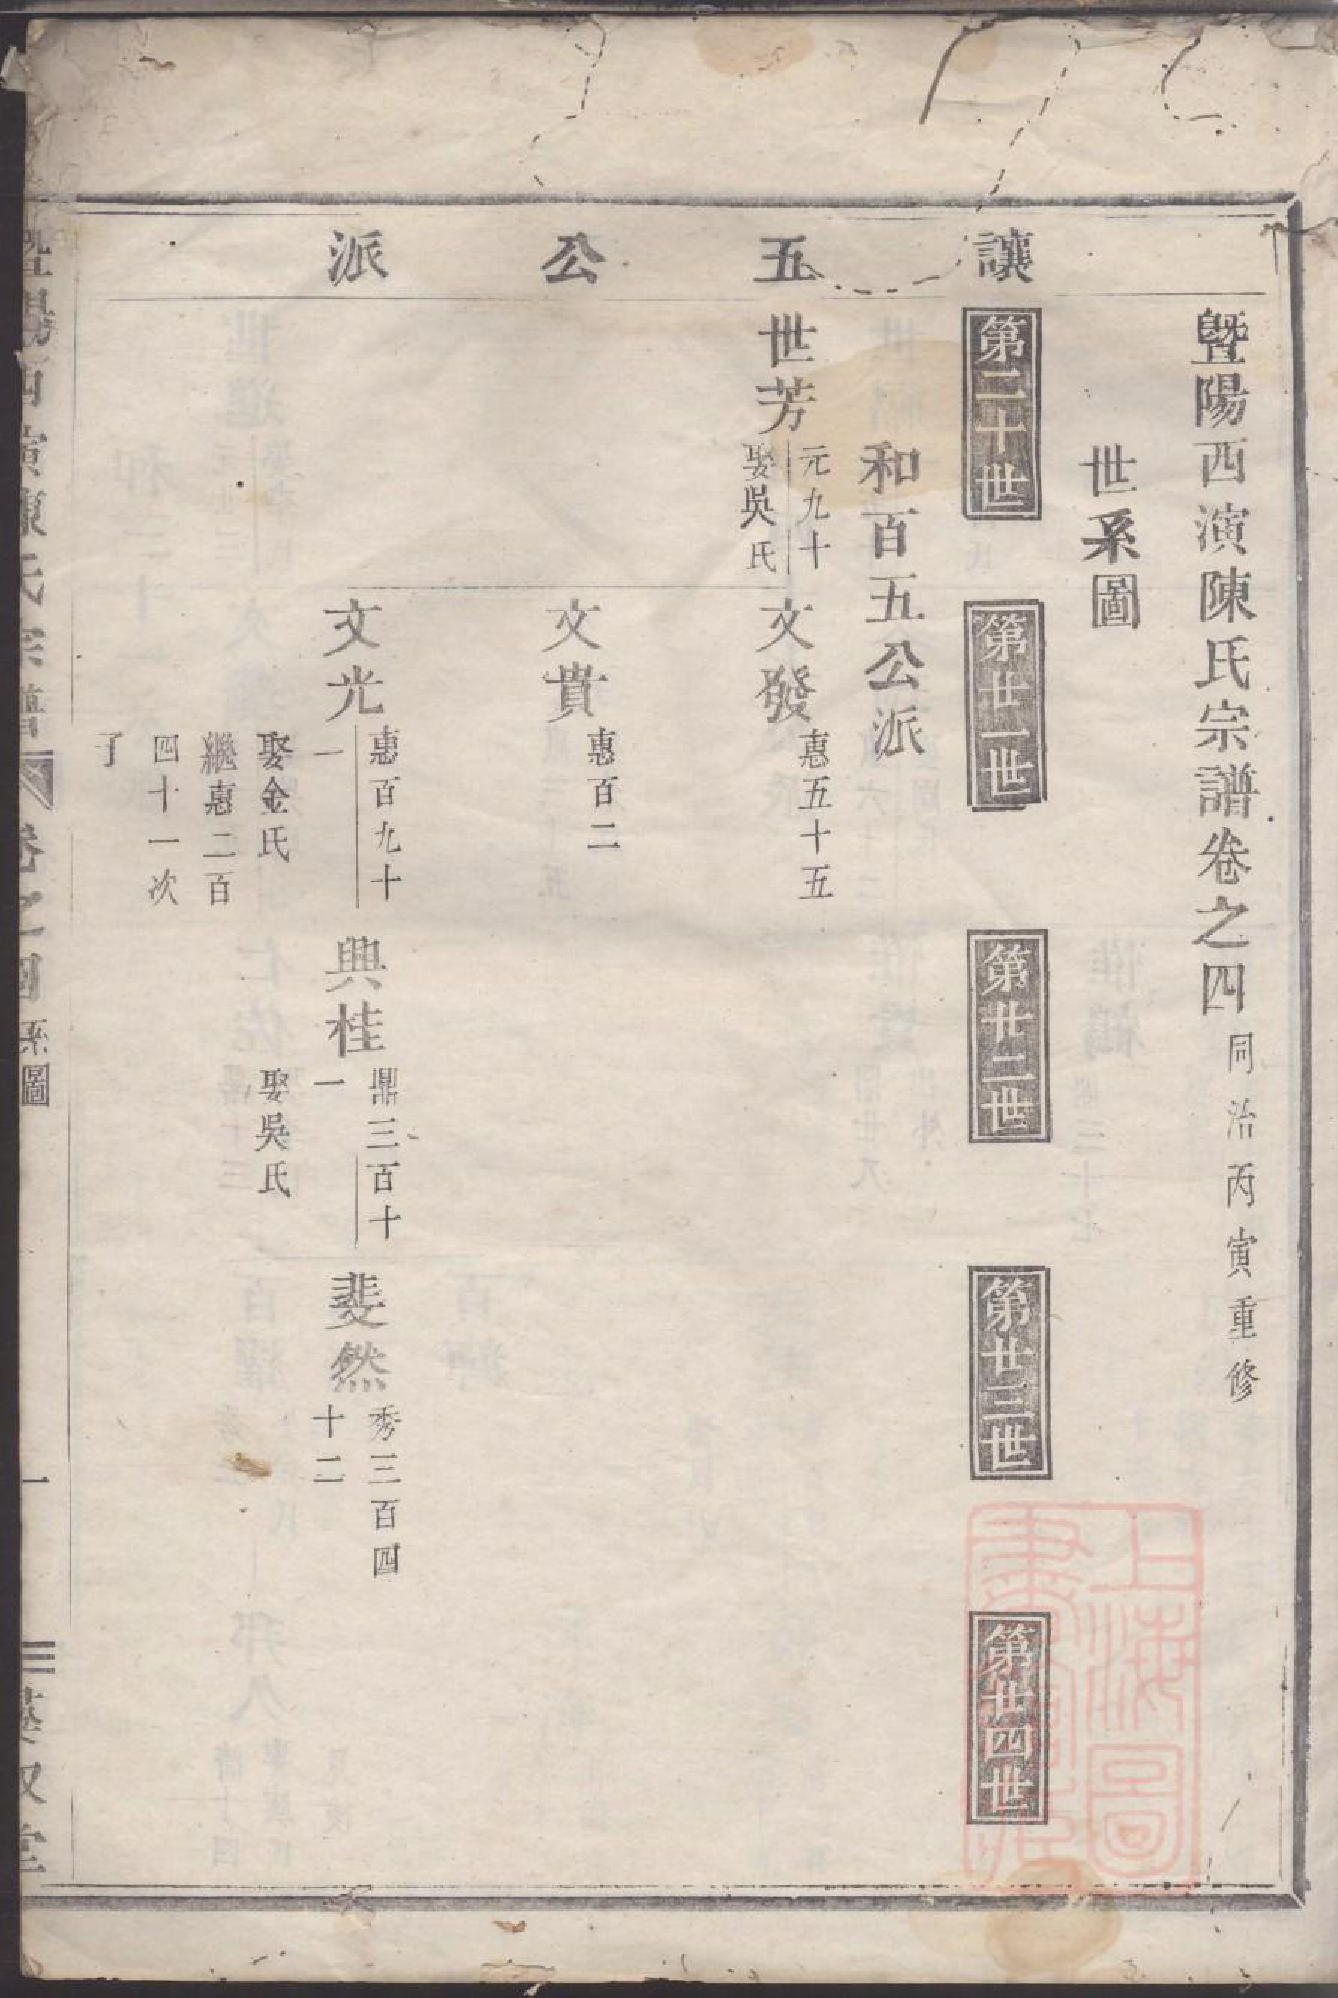 讓五公派
暨陽西演陳氏宗譜卷之四 同治丙寅重修
世系圖
第二十世
第廿一世
第廿二世
第廿三世
第廿四世
和百五公派
世芳 元九十
娶吳氏
文發 惠五十五
文貴 惠百二
文光 惠百九十
一
娶金氏
繼惠二百
四十一次
丁
興桂 鼎三百十
一
娶吳氏
斐然 秀三百四
十二
暨陽西演陳氏宗譜 卷之四 系圖 一
上海圖書館藏